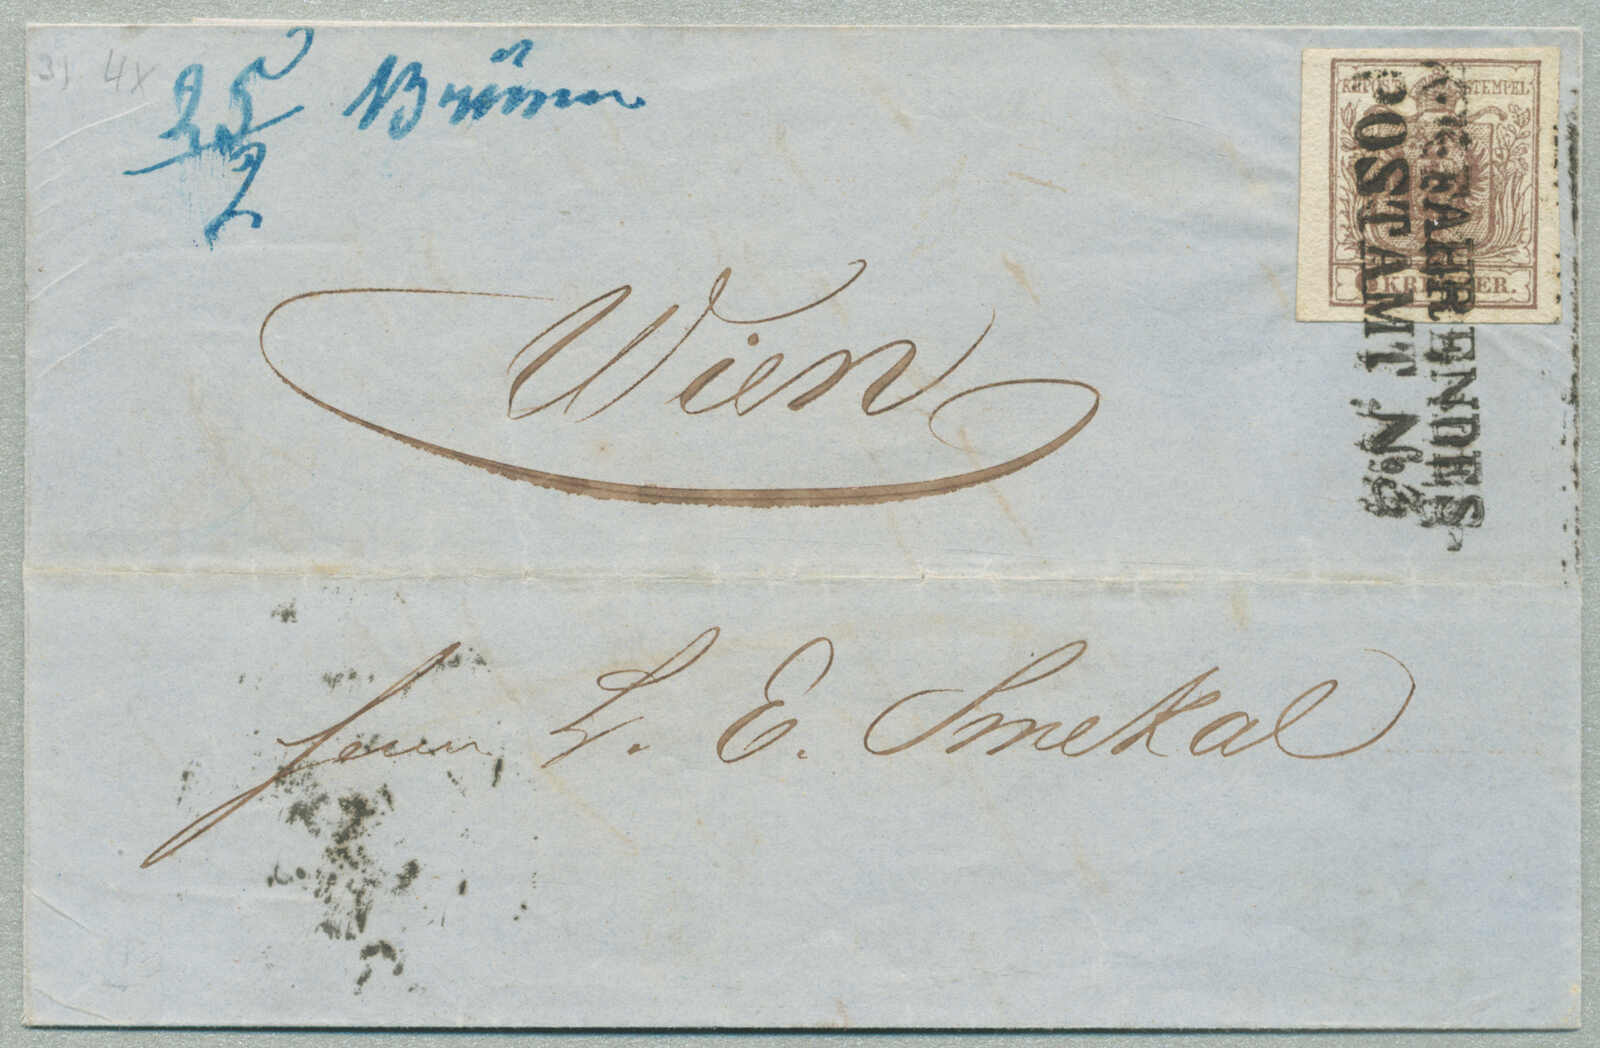 3) 4x
25/2 Brünn
K.K. POST-STEMPEL
6 KREUZER.
K.K. FAHRENDES
POSTAMT No. 3
Wien
Herrn L. E. Smekal